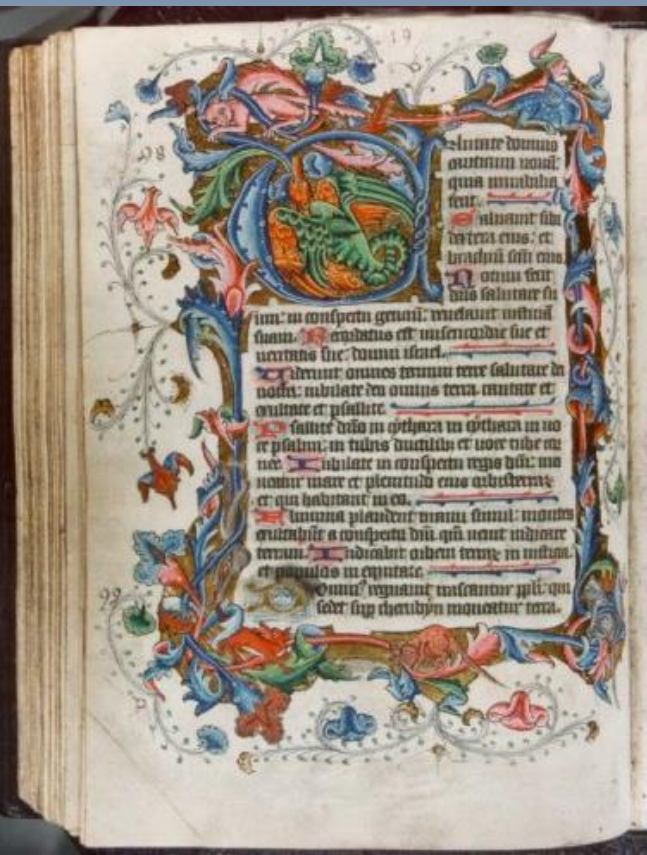 19
98
Cantate domino
canticum nouū:
quia mirabilia
fecit.
Saluauit sibi
dextera eius: et
brachiū scm̄ eius
Notum fecit
dn̄s salutare su
um: in conspectu gentiū: reuelauit iusticiā
suam. Recordatus est misericordie sue et
ueritatis sue: domui israel.
Uiderunt omnes termini terre salutare dei
nostri: iubilate deo omnis terra cantate et
exultate et psallite.
Psallite dn̄o in cythara in cythara et uo
ce psalmi: in tubis ductilibȝ et uoce tube cor
nee. Iubilate in conspectu regis dn̄i: mo
ueatur mare et plenitudo eius orbis terraꝝ
et qui habitant in eo.
Flumina plaudent manu simul: montes
exultabūt a conspectu dn̄i: qm̄ uenit iudicare
terram. Iudicabit orbem terraꝝ in iusticia
et populos in equitate.
99
Domin⁹ regnauit irascantur ppl̄i: qui
sedet sup̄ cherubyn moueatur terra.